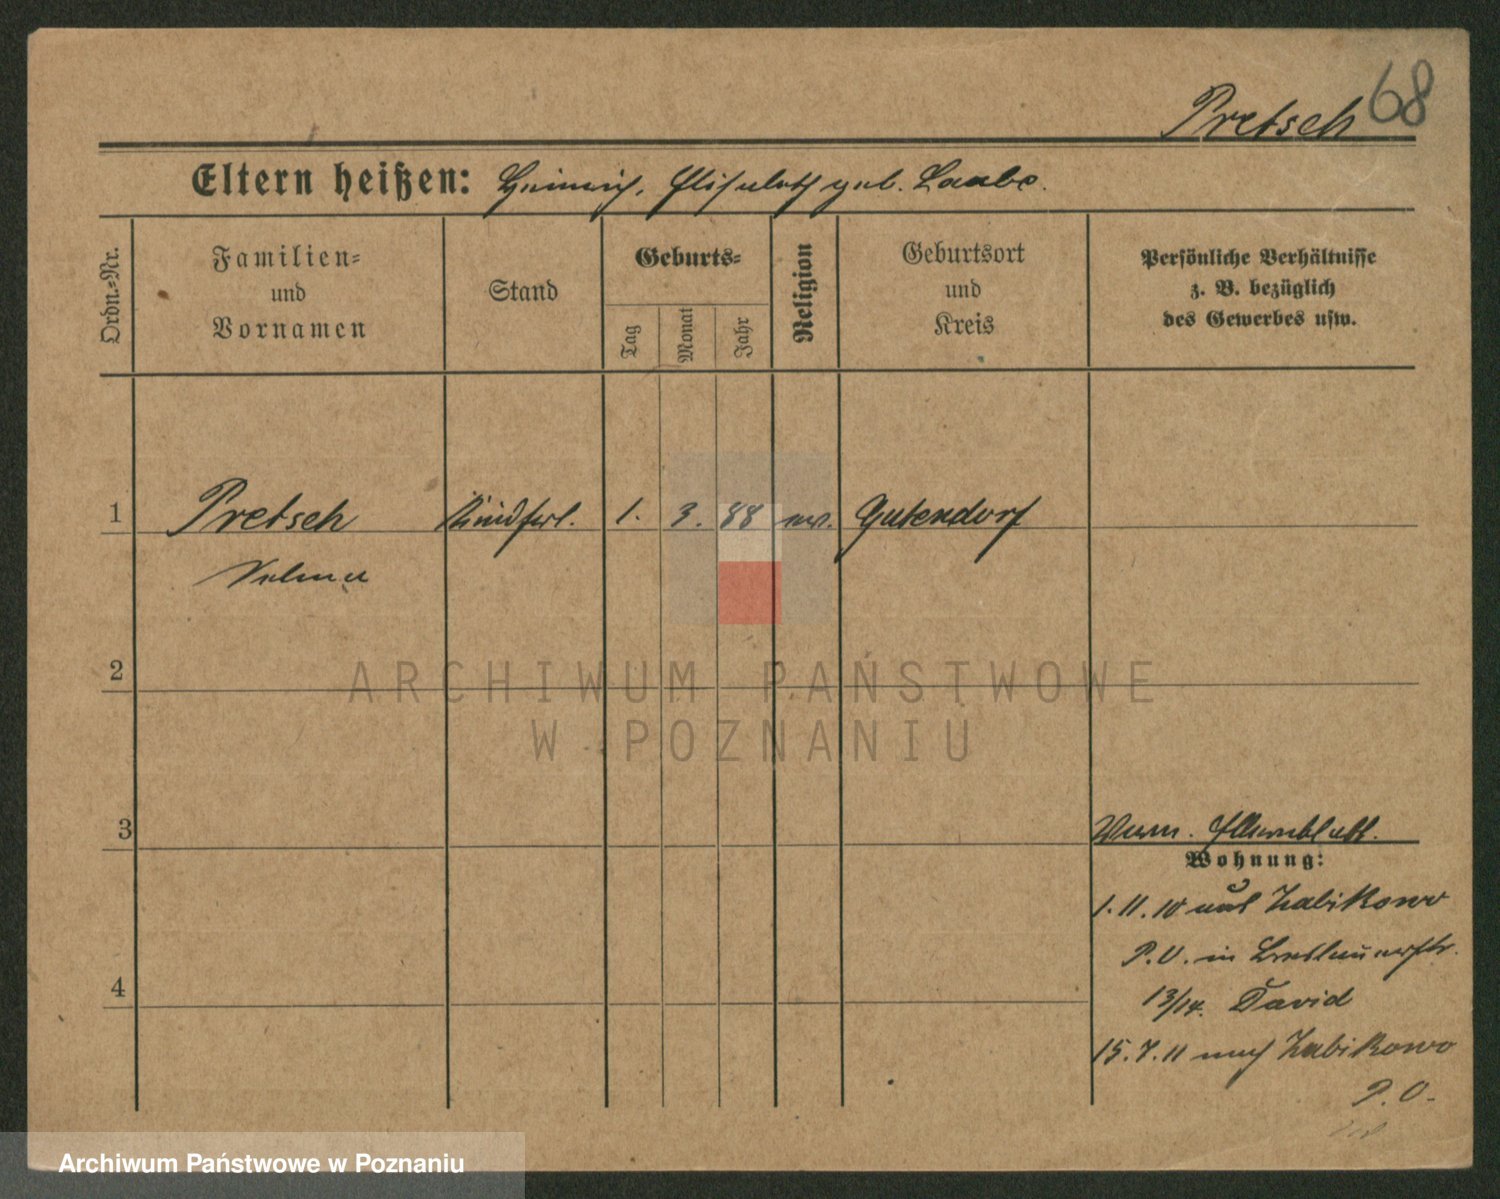 68
Pretsch
Eltern heißen: Heinrich, Elisabeth geb. Laabe.
Ordn.-Nr.
Familien-
und
Vornamen
Stand
Geburts-
Tag
Monat
Jahr
Religion
Geburtsort
und
Kreis
Persönliche Verhältnisse
z. B. bezüglich
des Gewerbes usw.
1
Pretsch
1.
3.
88
ev.
Gutendorf
2
ARCHIWUM PAŃSTWOWE
W POZNANIU
3
Wohnung:
1.11.10 aus Zabikowo
P.O. in Breslauerstr.
13/14. David
4
15.7.11 nach Zabikowo
P.O.
Archiwum Państwowe w Poznaniu